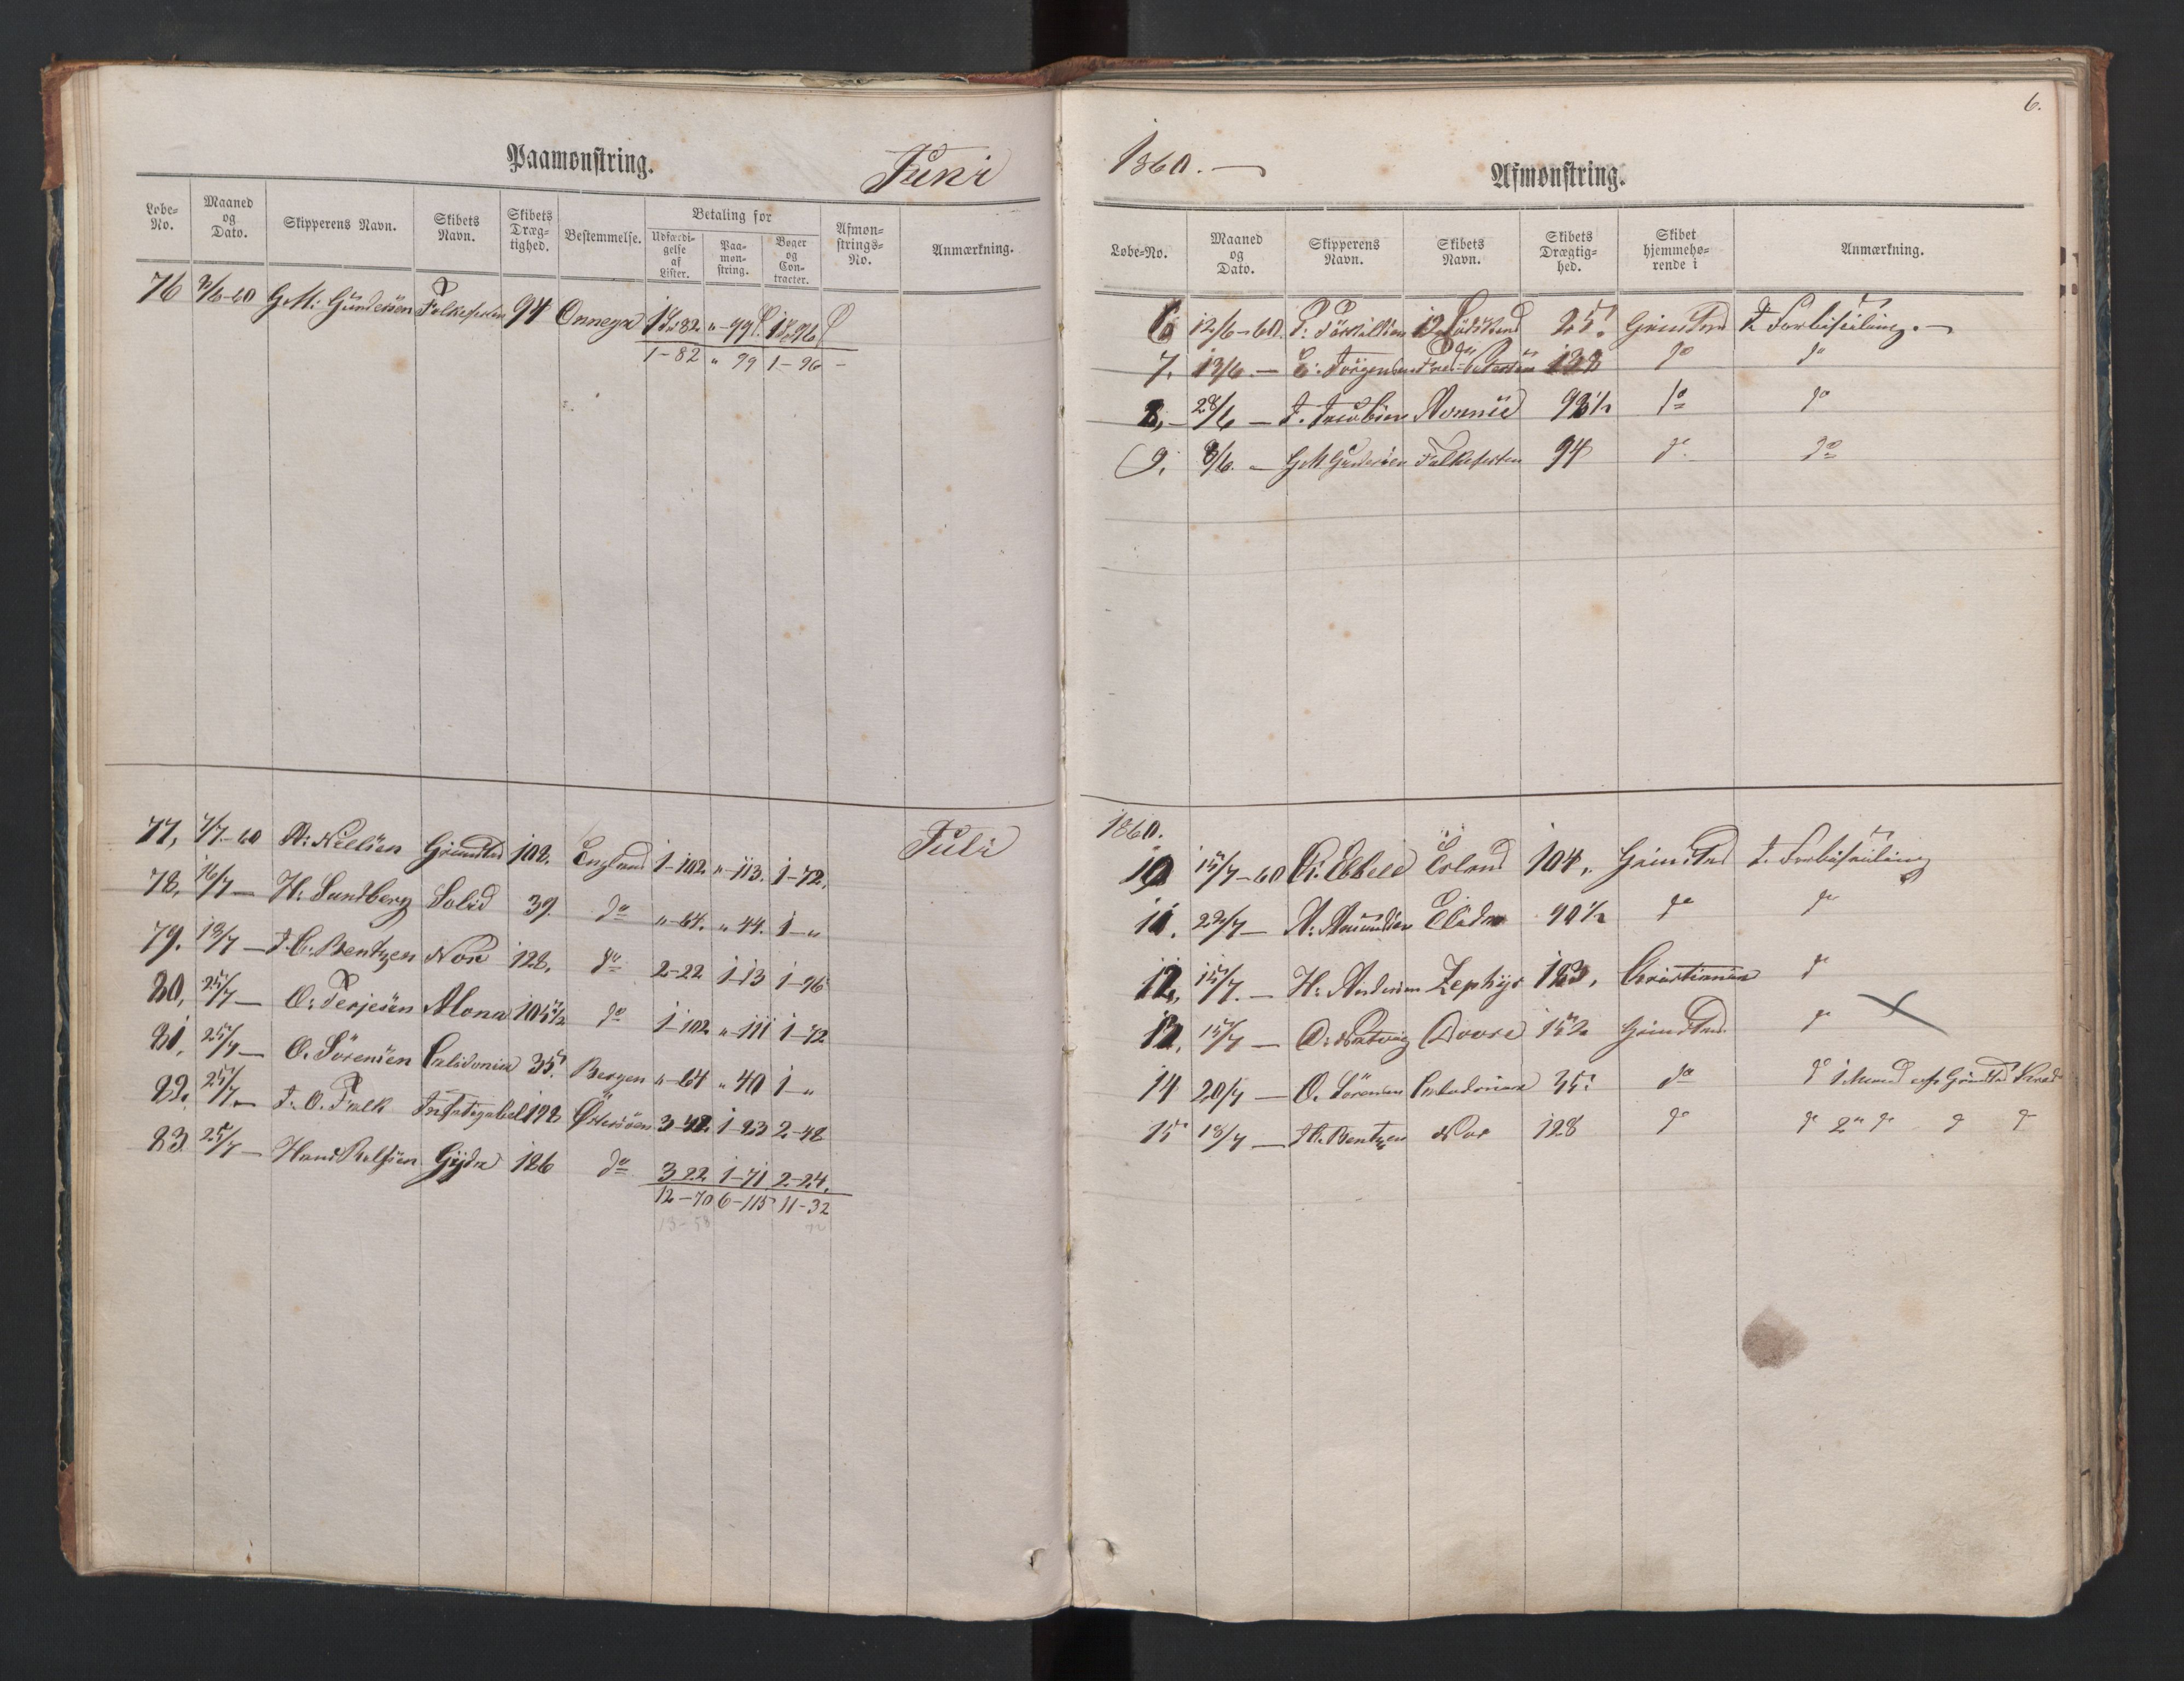 Paamønstring.
Juni
Løbe-No.
Maaned og Dato.
Skipperens Navn.
Skibets Navn.
Skibets Drægtighed.
Bestemmelse.
Betaling for
Udfærdigelse af Lister.
Paamønstring.
Bøger og Contracter.
Afmønstrings-No.
Anmærkning.
76 G. M. Gundersen 94 Onnega 1-82 "-99 1-96
1-82 " 99 1-96 -
Juli
77, 7/7-60 N. Nielsen Grimstad 108. England 1-102. "-113. 1-72.
78, 16/7 — H. Sundberg Solid 39. do "-64. "-44. 1-"
79. 18/7 — J. C. Bentzen Nor 128, do 2-22 1-13 1-96
80, 25/7 — O. Terjesen Alona 105½ do 1-102 "-111 1-72
81, 25/7 — O. Sörensen Calidonia 35. Bergen "-64 "40 1-"
82. 25/7 — J. O. Falk Infatigabel 198 Østersöen 3-42. 1-83 2-48
83 25/7 — Hans Rolfsen Gyda 186 do 3-22 1-71 2-24.
12-70 6-115 11-32
13-58 72
6.
1860. —
Afmønstring.
Løbe-No.
Maaned og Dato.
Skipperens Navn.
Skibets Navn.
Skibets Drægtighed.
Skibet hjemmehørende i
Anmærkning.
6 12/6-60. 25. Grimstad F. Forbiseiling. —
7. 13/6. — E. Jörgensen 138 do do
8, — 28/6 — J. Jacobsen 93½ do do
9. 8/6. — G M Gundersen 94 do do
1860.
10 15/7-60 Erland 104. Grimstad F. Forbiseiling
11. 22/7 — A. Amundsen Elida 90½ do do
12, 15/7. — H. Andersen Zephyr 183, Christiania do
13, 15/7 — O. Natvig Dovre 152 Grimstad do
14 20/7 — O. Sörensen Calidonia 35. do do 1 Mand af Grimstad Kreds
15 18/7 — Bentzen Nor 128 do do 2 do do do